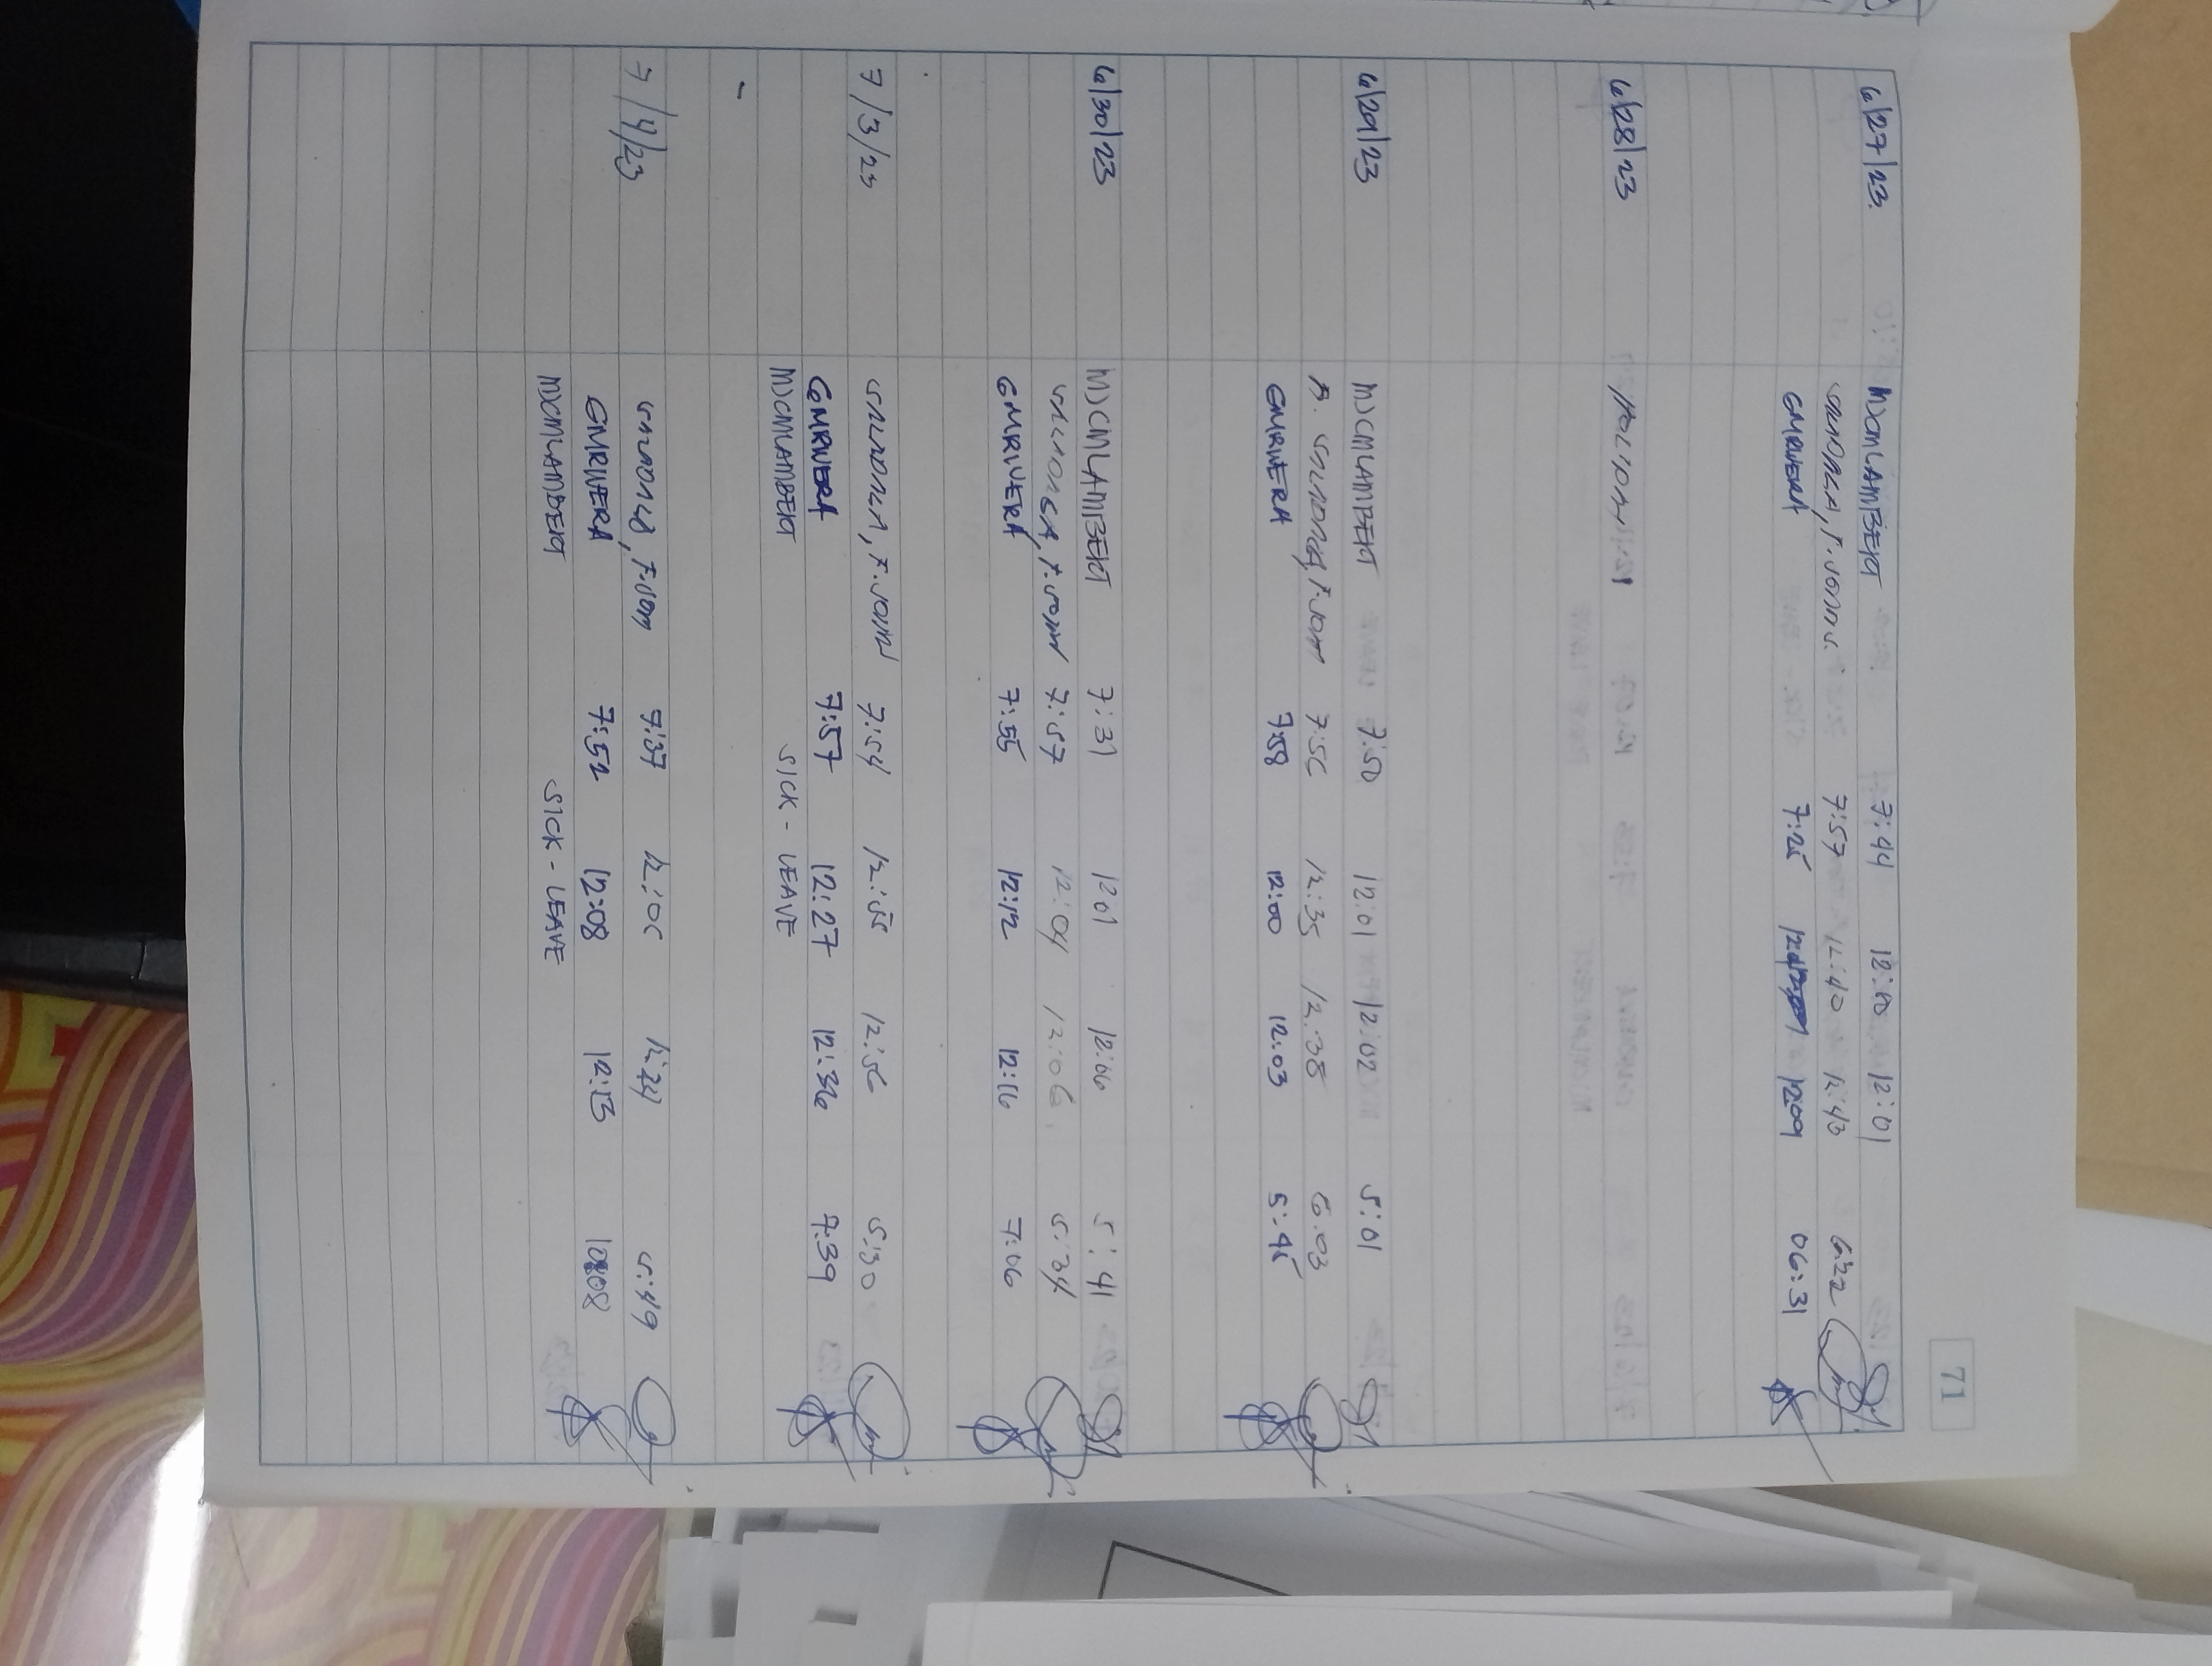 71
6/27/23 MJCMLAMBERT 7:44 12:00 12:01
7:57 12:40 12:43 6:22
GMRIVERA 7:25 1209 06:31
6/28/23 HOLIDAY
6/29/23 MJCMLAMBERT 7:50 12:01 12:02 5:01
7:56 12:35 12:38 6:03
GMRIVERA 7:58 12:00 12:03 5:45
6/30/23 MJCMLAMBERT 7:31 12:01 12:06 5:41
7:57 12:04 12:06 5:34
GMRIVERA 7:55 12:12 12:16 7:06
7/3/23 7:54 12:55 12:56 5:30
GMRIVERA 7:57 12:27 12:36 7:39
MJCMLAMBERT SICK - LEAVE
7/4/23 7:37 12:06 12:24 5:49
GMRIVERA 7:52 12:08 12:13
MJCMLAMBERT SICK - LEAVE